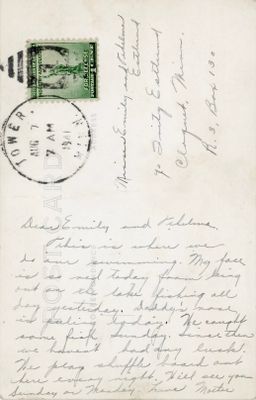 TOWER,
AUG 7
7 AM
1941
MINN.
Misses Emily and Thelma
Estlund
% Fritz Estlund
Cloquet, Minn.
R.3, Box 130
Dear Emily and Thelma.
This is where we
do our swimming. My face
is so red today from being
out on the lake fishing all
day yesterday. Daddy's nose
is peeling today. He caught
some fish Sunday. Since then
we haven't had any luck.
We play shuffle board out
here every night. We'll see you
Sunday or Monday. Love Mother